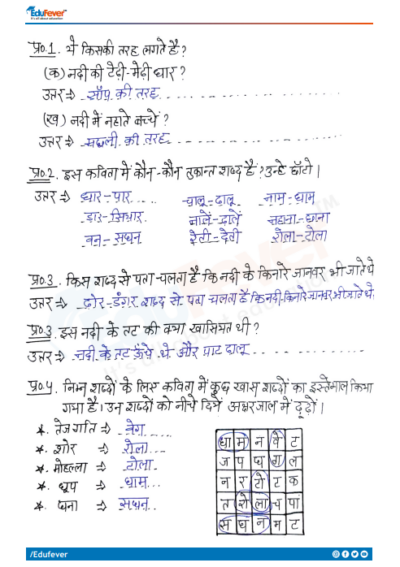 EduFever
प्र०1. ये किसकी तरह लगते है?
(क) नदी की टेढ़ी-मेढ़ी धार?
उत्तर⇒ साँप की तरह
(ख) नदी में नहाते बच्चें?
उत्तर⇒ मछली की तरह
प्र०2. इस कविता में कौन-कौन तुकान्त शब्द है? उन्हे छाँटो।
उत्तर⇒ धार-पार चालू-ढालू नाम-धाम
डार-सियार नालें-ढालें नहाना-छाना
वन-सघन रेती-देती रोला-टोला
प्र०3. किस शब्द से पता चलता है कि नदी के किनारे जानवर भी जाते थे
उत्तर⇒ ढोर-डंगर शब्द से पता चलता है कि नदी किनारे जानवर भी जाते थे
प्र०3. इस नदी के तट की क्या खासियत थी?
उत्तर⇒ नदी के तट ऊँचे थे और पाट ढालू
प्र०4. निम्न शब्दों के लिए कविता में कुछ खास शब्दों का इस्तेमाल किया
गया है। उन शब्दों को नीचे दिये अक्षरजाल में ढूढ़ों।
* तेज गति ⇒ वेग
* शोर ⇒ रोला
* मोहल्ला ⇒ टोला
* धूप ⇒ धाम
* घना ⇒ सघन
धा म न वे ट
ज प घ ग ल
न र टो ट क
त रो ला च पा
स घ न म ट
/Edufever